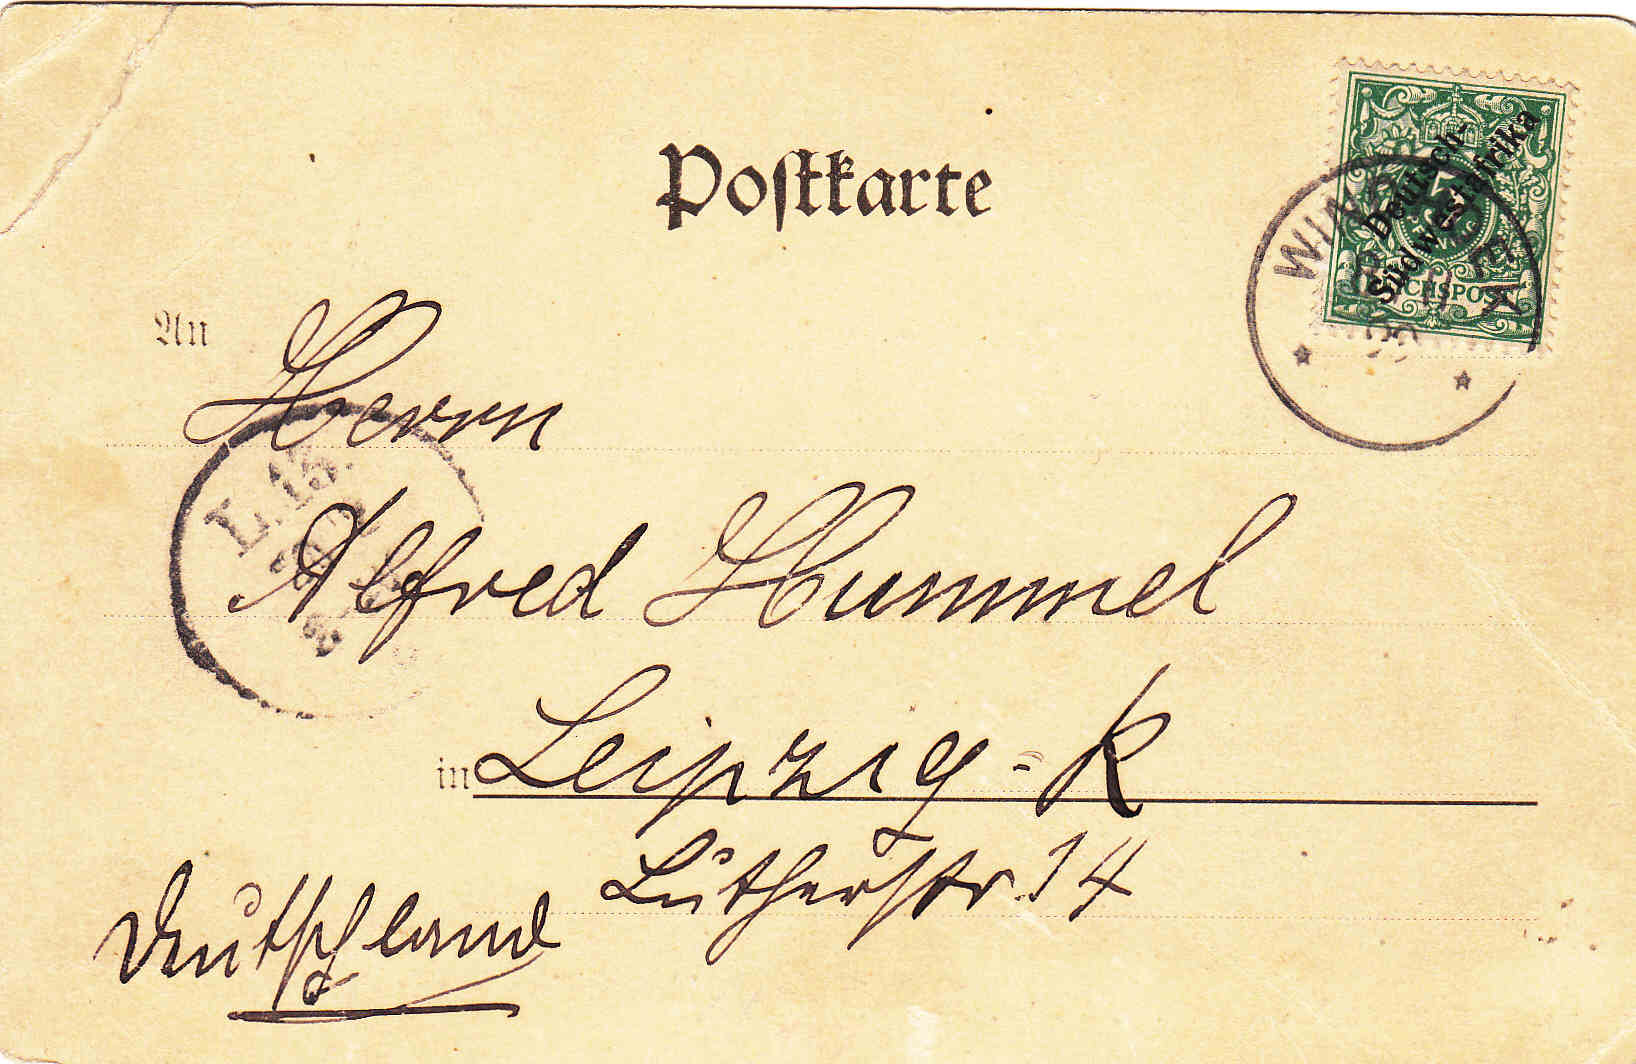 Postkarte
5
Deutsch-
Südwestafrika
REICHSPOST
An
Herrn
Alfred Hummel
in Leipzig - R
Lutherstr. 14
Deutschland